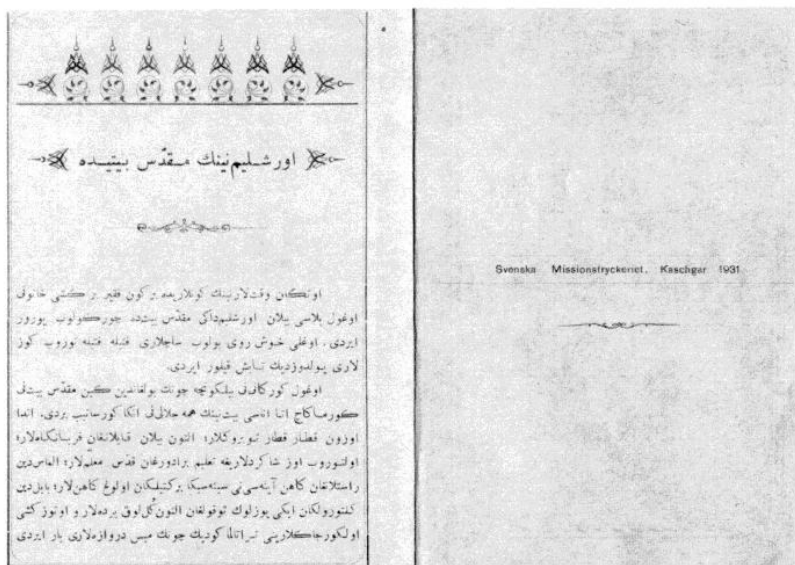 اورشليم‌نينك مقدّس بيتيده
اوتكان وقت‌لارنينك كونلاريده بر كون فقير بر كشى خاتون
اوغول بلاسى بيلان اورشليم‌داكى مقدّس بيت‌ده چوركولوب يورور
ايردى. اوغلى خوش روى بولوب ساچلارى فتيله فتيله توروب كوز
لارى يولدوزديك تاش قيلور ايردى.
اوغول كوركانى بيلكونچه چونك بولغاندين كين مقدّس بيت‌نى
كورماكاچ اتا اناسى بيت‌نينك همه جلالى‌نى انكا كورساتيب بردى. اندا
اوزون قطار قطار توبروكلار؛ التون بيلان قاپلانغان قربانكاه‌لار؛
اولتوروب اوز شاكردلاريغه تعليم برادورغان قدّس معلّم‌لار؛ الماس‌دين
كاهن آينه‌سى‌نى سينه‌سيكا بركتيلكان اولوغ كاهن‌لار؛ بابل‌دين
كلتورولكان ايكى يوزلوك توقولغان التون كُل‌لوق پرده‌لار و اوتوز كشى
كوديك چونك ميس دروازه‌لارى بار ايردى
Svenska Missionstryckeriet, Kaschgar 1931